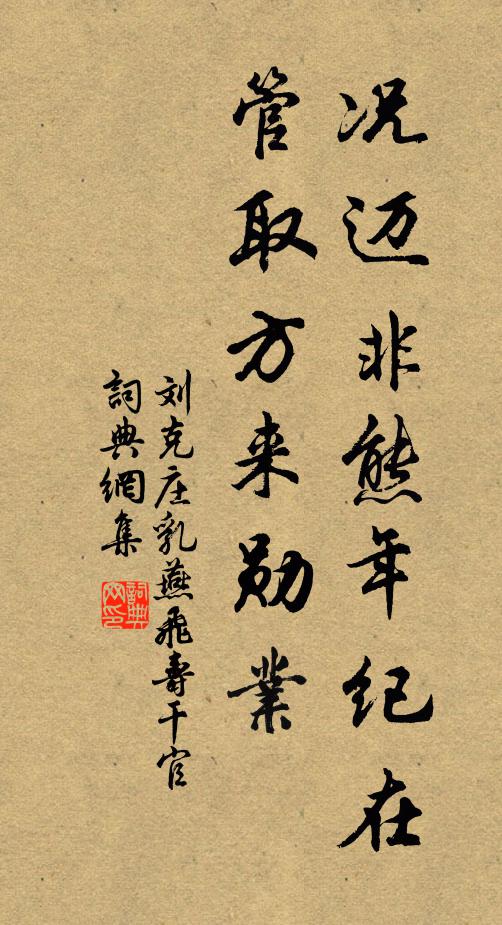 况迈非熊年纪在
管取方来勋業
刘克庄乳燕飛壽干官
詞典網集
詞典网印